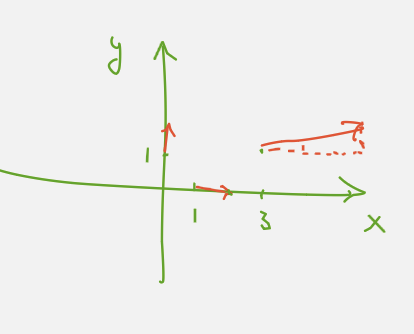 y
1
1
3
x